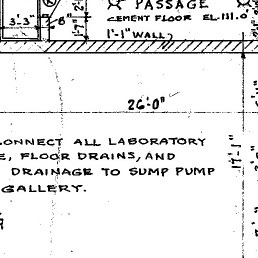 PASSAGE
3'-3" 8" CEMENT FLOOR EL. 111.0'
1'-7"
1'-1" WALL
26'-0"
CONNECT ALL LABORATORY
E, FLOOR DRAINS, AND
DRAINAGE TO SUMP PUMP
GALLERY.
17'-1"